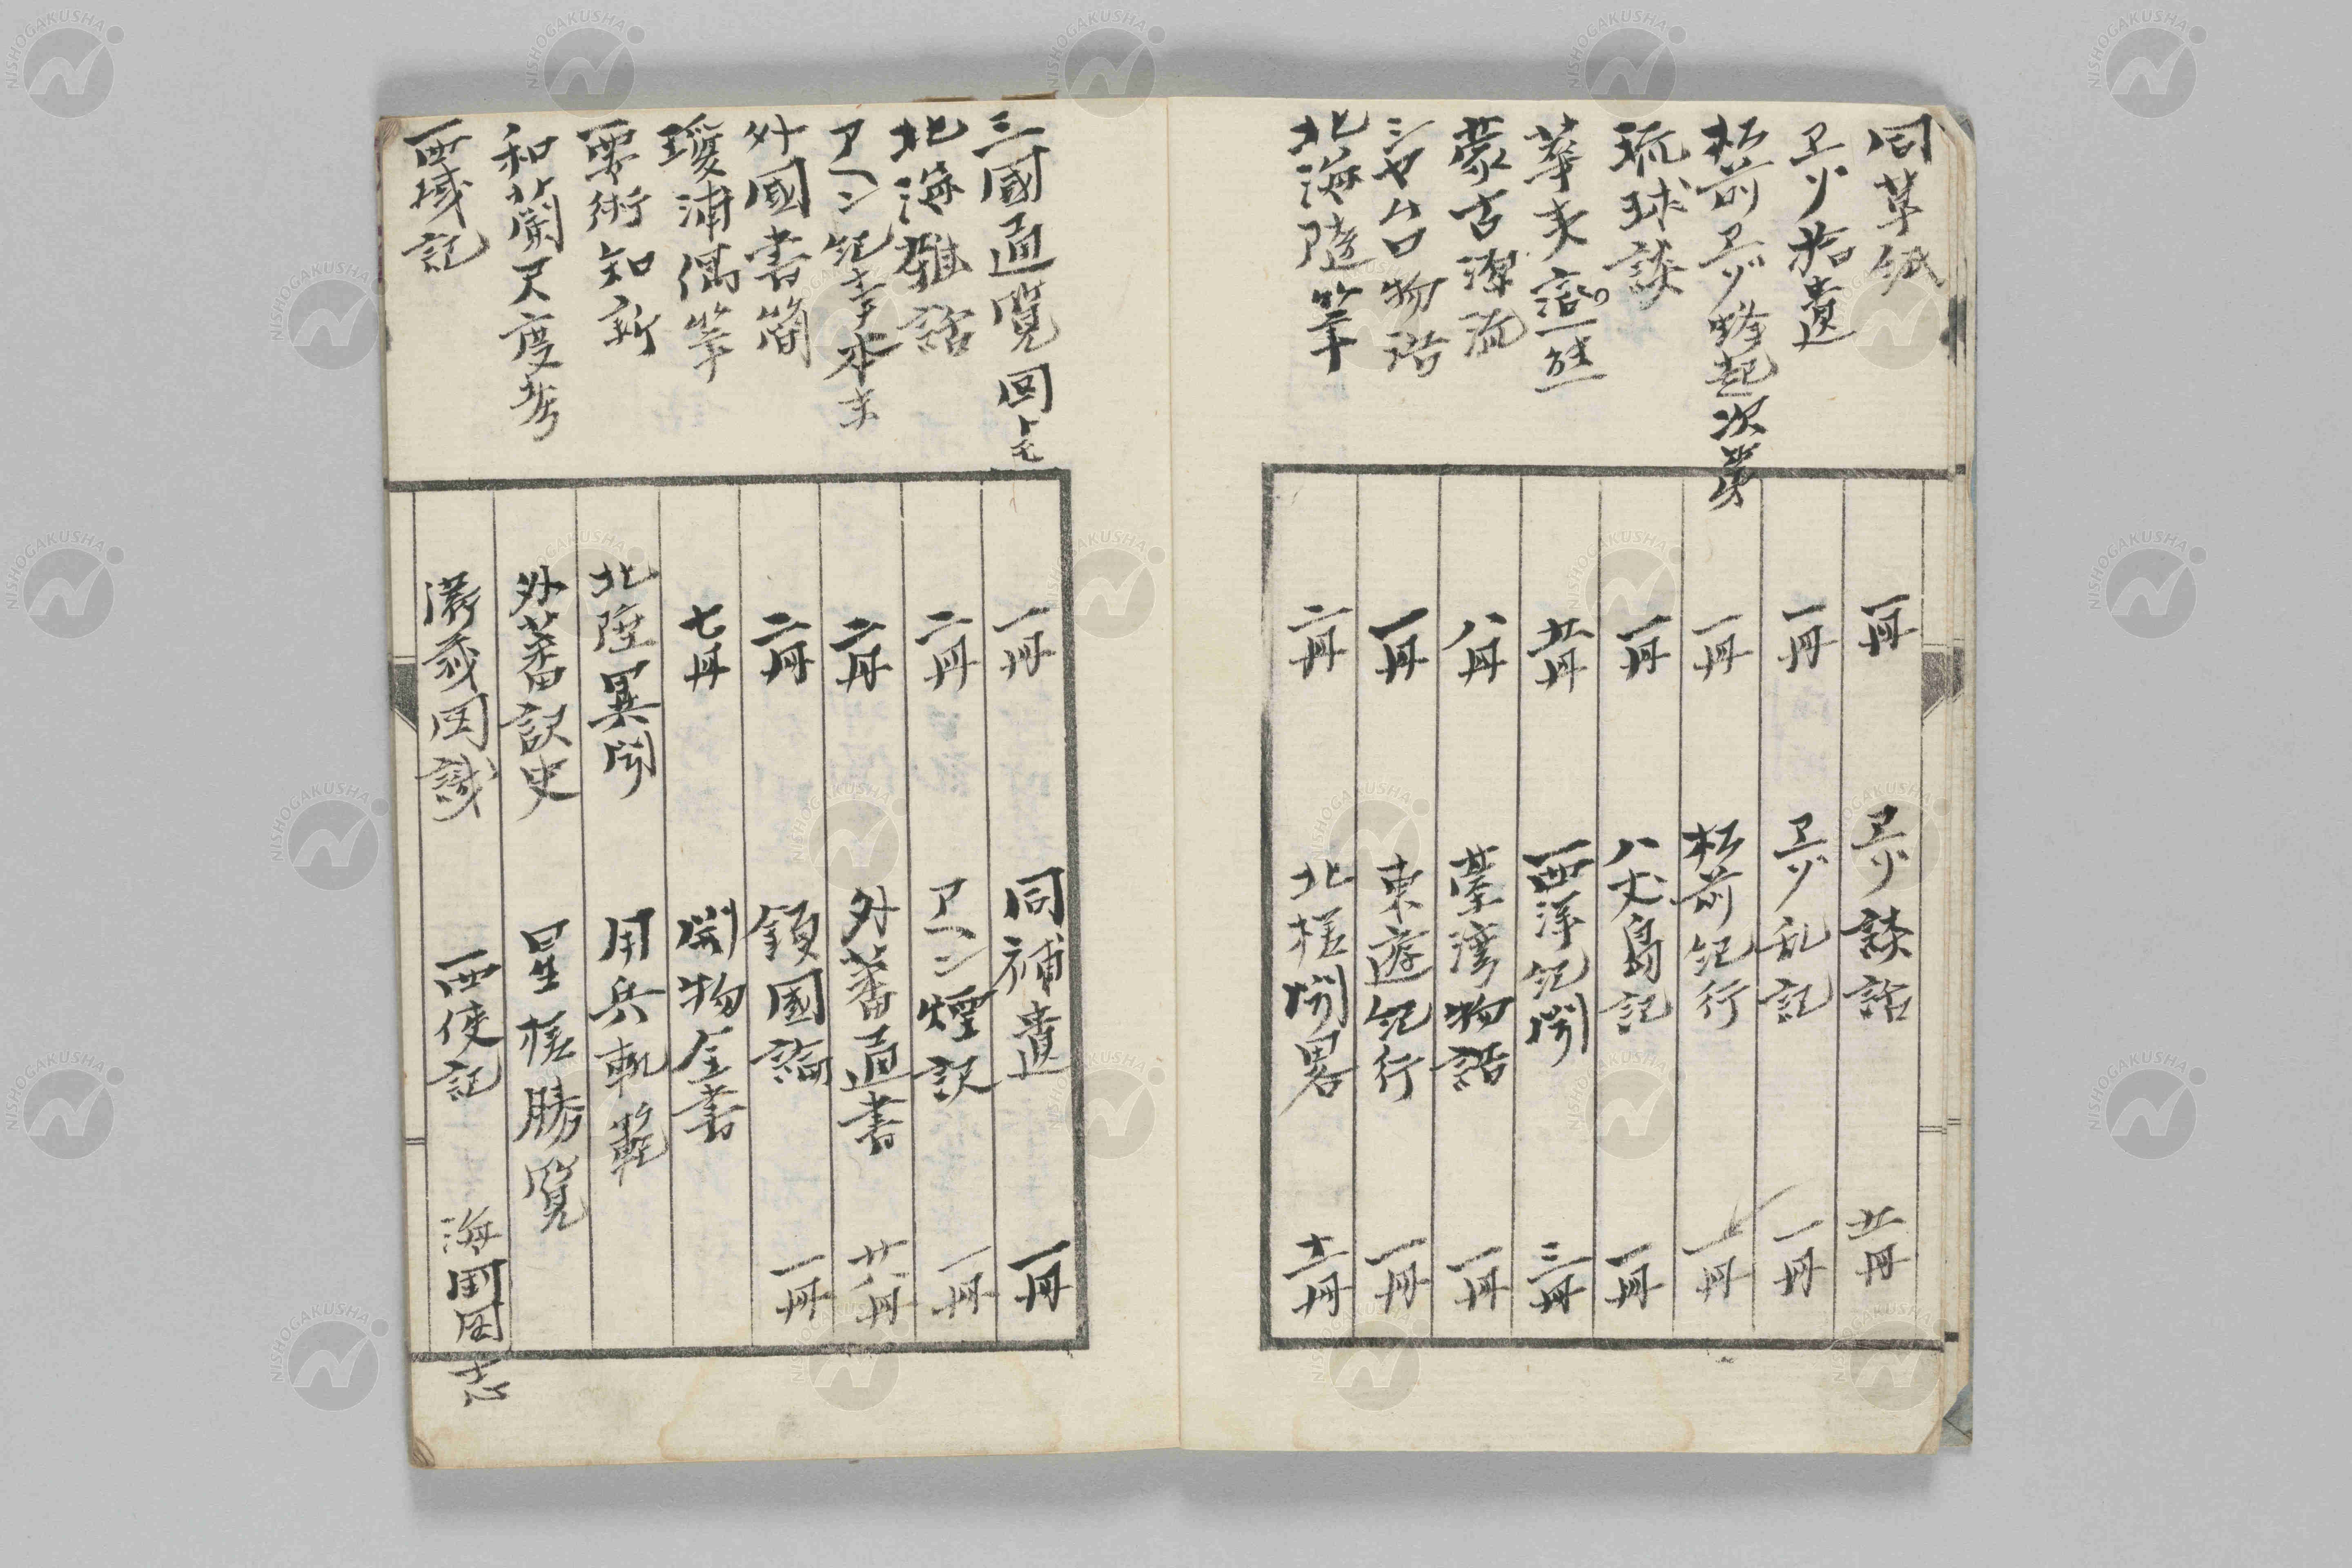 同草紙 一冊 ヱゾ談話 廿冊
ヱゾ拾遺 一冊 ヱゾ乱記 一冊
松前ヱゾ蜂起次第 一冊 松前紀行 一冊
琉球談 一冊 八丈島記 一冊
華夷 廿冊 西洋紀聞 三冊
蒙古源流 八冊 臺湾物語 一冊
シヤムロ物語 一冊 東遊紀行 一冊
北海随筆 二冊 北槎聞畧 十二冊
三國通覧 一冊 同補遺 一冊
北海雑話 二冊 アヘン煙説 一冊
アヘン紀事本末 二冊 外蕃通書 廿八冊
外國書簡 二冊 鎖國論 一冊
瓊浦偶筆 七冊 開物全書
要術知新 北陲異聞 用兵軌範
和蘭尺度考 外蕃訳史 星槎勝覧
西域記 満蒙図識 西使記 海国図志
NISHOGAKUSHA